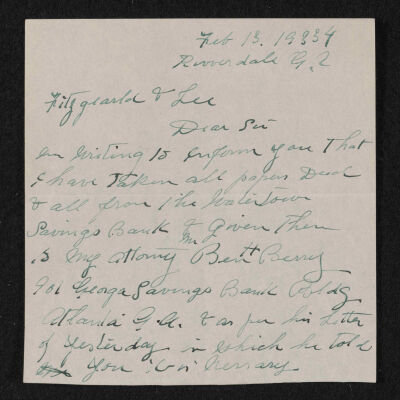 Feb 13. 19334
Riverdale G.A
Fitzgearld & Lee
Dear Sir
in writing to inform you That
I have Taken all papers Deed
& all from The Watertown
Savings Bank & Given Them
to My attorny Ben H Berry
901 Georga Savings Bank Bldg
Atlanta G.A. & as per his Letter
of yesterday in which he told
you